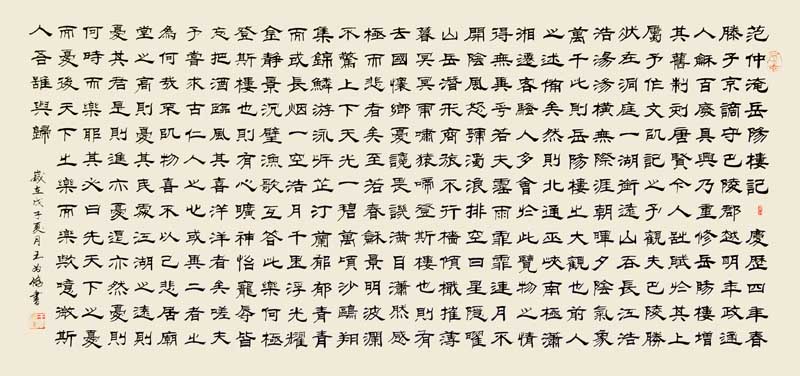 范仲淹岳陽樓記 慶歷四年春
滕子京謫守巴陵郡越明年政通
人龢百廢具興乃重修岳陽樓增
其舊制刻唐賢今人詩賦於其上
屬予作文以記之予觀夫巴陵勝
狀在洞庭一湖銜遠山吞長江浩
浩湯湯橫無際涯朝暉夕陰氣象
萬千此則岳陽樓之大觀也前人
之述備矣然則北通巫峽南極瀟
湘遷客騷人多會於此覽物之情
得無異乎若夫霪雨霏霏連月不
開陰風怒號濁浪排空日星隱曜
山岳潛形商旅不行檣傾楫摧薄
暮冥冥虎嘯猿啼登斯樓也則有
去國懷鄉憂讒畏譏滿目瀟然感
極而悲者矣至若春龢景明波瀾
不驚上下天光一碧萬頃沙鷗翔
集錦鱗游泳岸芷汀蘭郁郁青青
而或長煙一空浩月千里浮光耀
金靜景沉璧漁歌互答此樂何極
登斯樓也則有心曠神怡寵辱皆
忘把酒臨風其喜洋洋者矣嗟夫
予嘗求古仁人之心或異二者之
為何哉不以物喜不以己悲居廟
堂之高則憂其民處江湖之遠則
憂其君是則進亦憂退亦然憂則
何時而樂耶其必曰先天下之憂
而憂後天下之樂而樂歟噫微斯
人吾誰與歸
歲在戊子夏月王書